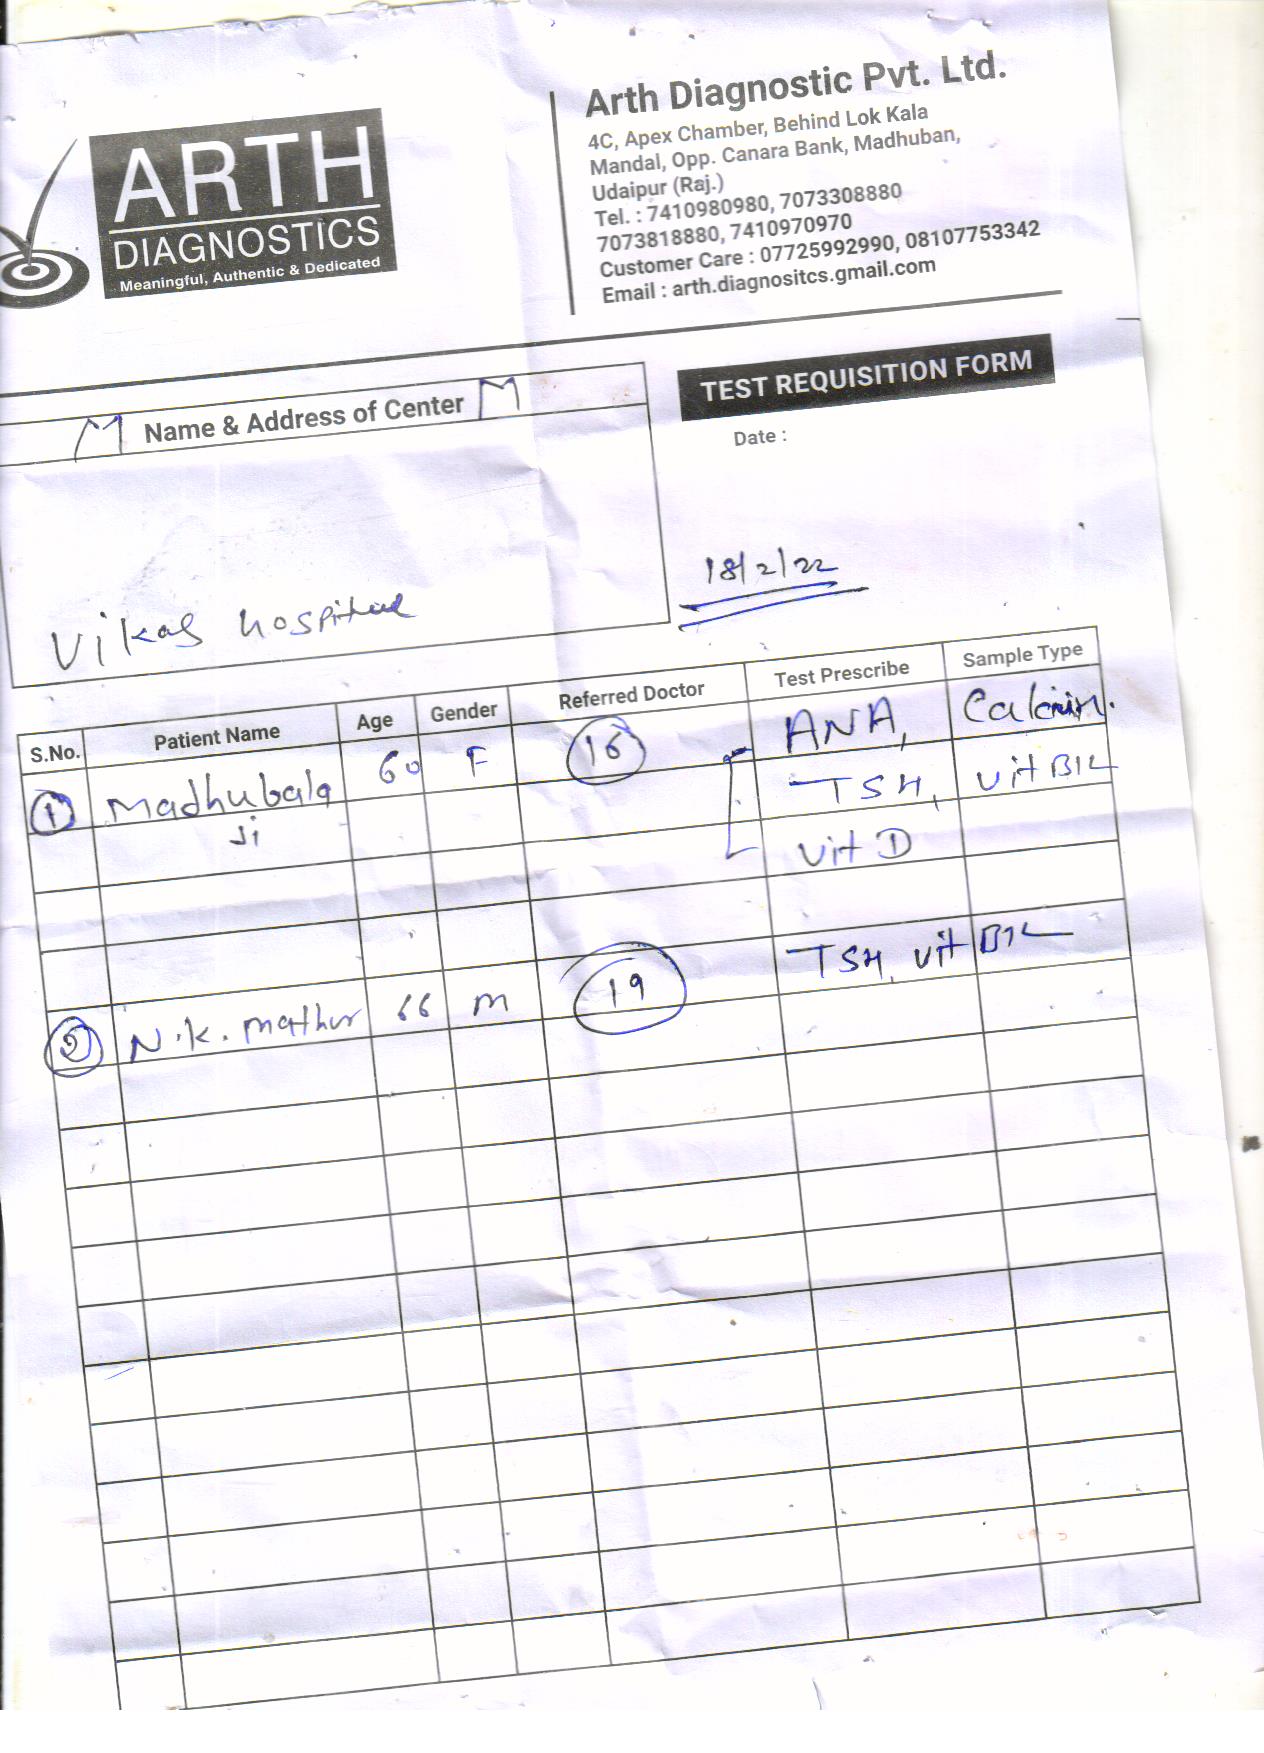 ARTH
DIAGNOSTICS
Meaningful, Authentic & Dedicated
Arth Diagnostic Pvt. Ltd.
4C, Apex Chamber, Behind Lok Kala
Mandal, Opp. Canara Bank, Madhuban,
Udaipur (Raj.)
Tel. : 7410980980, 7073308880
7073818880, 7410970970
Customer Care : 07725992990, 08107753342
Email : arth.diagnositcs.gmail.com
M Name & Address of Center M
TEST REQUISITION FORM
Date :
18/2/22
Vikas hospital
S.No. Patient Name Age Gender Referred Doctor Test Prescribe Sample Type
1 Madhubala 60 F 16 ANA, Calcium.
Ji TSH, vit B12
vit D
2 N.K. mathur 66 M 19 TSH, vit B12